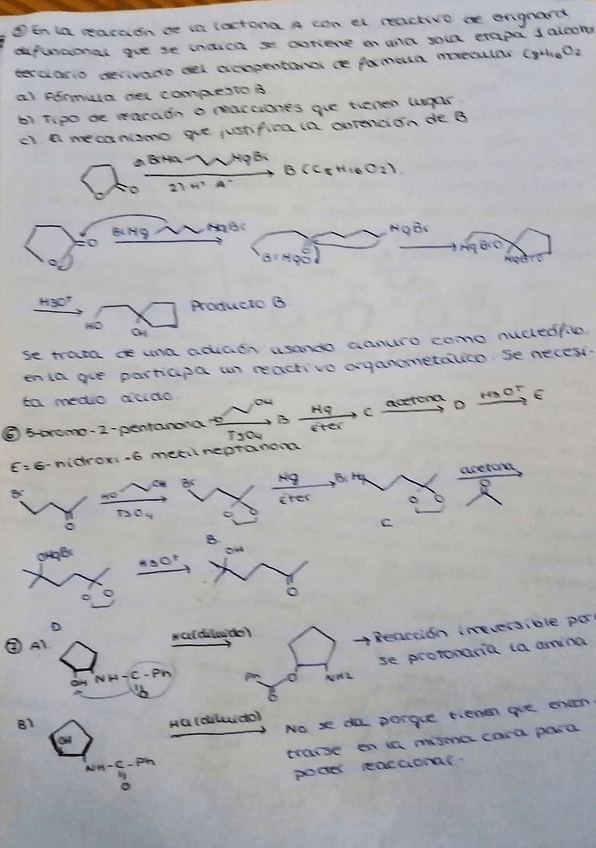 ⑤ En la reacción de la lactona A con el reactivo de grignard
difuncional que se indica se obtiene en una sola etapa 1 alcohol
terciario derivado del ciclopentanol de fórmula molecular C8H16O2
a) Fórmula del compuesto B
b) Tipo de reacción o reacciones que tienen lugar
c) El mecanismo que justifica la obtención de B
BrMg MgBr
2) H+ B (C8H16O2).
O O
BrMg MgBr MgBr
O O BrMgO MgBrO MgBrO
H3O+ HO OH Producto B
Se trata de una adición usando cianuro como nucleófilo
en la que participa un reactivo organometálico. Se necesi-
ta medio ácido.
⑥ 5-bromo-2-pentanona OH TsOH B Mg éter C acetona D H3O+ E
E = 6-hidroxi-6 metil heptanona
Br O HO OH TsOH Br O O Mg éter BrMg O O acetona O
B. C
OMgBr O O H3O+ OH O
D
⑦ A). OH NH-C-Ph O HCl(diluido) Ph O O NH2 → Reacción irreversible por
se protonaría la amina
B) OH NH-C-Ph O HCl(diluido) No se da porque tienen que encon-
trarse en la misma cara para
poder reaccionar.